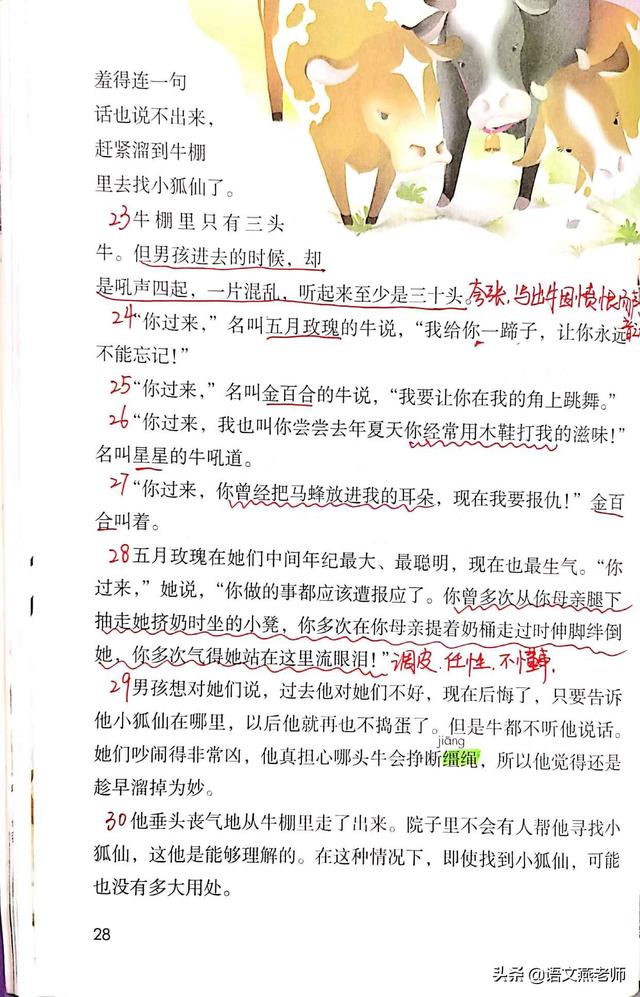 羞得连一句
话也说不出来，
赶紧溜到牛棚
里去找小狐仙了。
23牛棚里只有三头
牛。但男孩进去的时候，却
是吼声四起，一片混乱，听起来至少是三十头。夸张，写出牛因愤怒而
24“你过来，”名叫五月玫瑰的牛说，“我给你一蹄子，让你永远
不能忘记！”
25“你过来，”名叫金百合的牛说，“我要让你在我的角上跳舞。”
26“你过来，我也叫你尝尝去年夏天你经常用木鞋打我的滋味！”
名叫星星的牛吼道。
27“你过来，你曾经把马蜂放进我的耳朵，现在我要报仇！”金百
合叫着。
28五月玫瑰在她们中间年纪最大、最聪明，现在也最生气。“你
过来，”她说，“你做的事都应该遭报应了。你曾多次从你母亲腿下
抽走她挤奶时坐的小凳，你多次在你母亲提着奶桶走过时伸脚绊倒
她，你多次气得她站在这里流眼泪！”调皮、任性、不懂事
29男孩想对她们说，过去他对她们不好，现在后悔了，只要告诉
他小狐仙在哪里，以后他就再也不捣蛋了。但是牛都不听他说话。
jiāng
她们吵闹得非常凶，他真担心哪头牛会挣断缰绳，所以他觉得还是
趁早溜掉为妙。
30他垂头丧气地从牛棚里走了出来。院子里不会有人帮他寻找小
狐仙，这他是能够理解的。在这种情况下，即使找到小狐仙，可能
也没有多大用处。
28
头条@语文燕老师